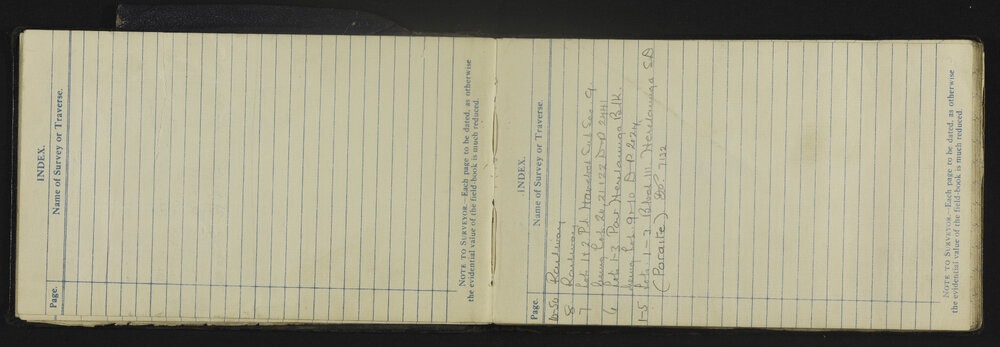 INDEX.
Page. Name of Survey or Traverse.
NOTE TO SURVEYOR.—Each page to be dated, as otherwise
the evidential value of the field-book is much reduced.
INDEX.
Page. Name of Survey or Traverse.
Railway
8 Railway
7 Lots 1 & 2 Pt
being Lots 20, 21 & 22 D.P. 2441
6 Lots 1-3
being Lots 9 - 10 D.P. 2024
1-5 Lots 1-7 Block III S.D
(Paraite) 7132
NOTE TO SURVEYOR.—Each page to be dated, as otherwise
the evidential value of the field-book is much reduced.